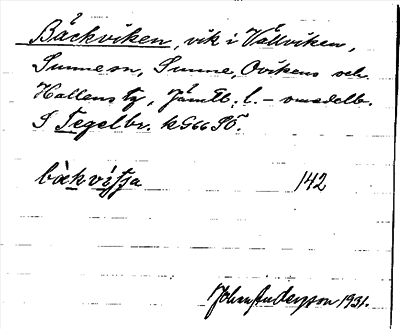 Bäckviken, vik i Vällviken,
Sunnesn, Sunne, Ovikens och
Hallens tg, Jämtl. l. – omedelb.
S Tegelbr. k G66 SÖ.
142
John Andersson 1931.